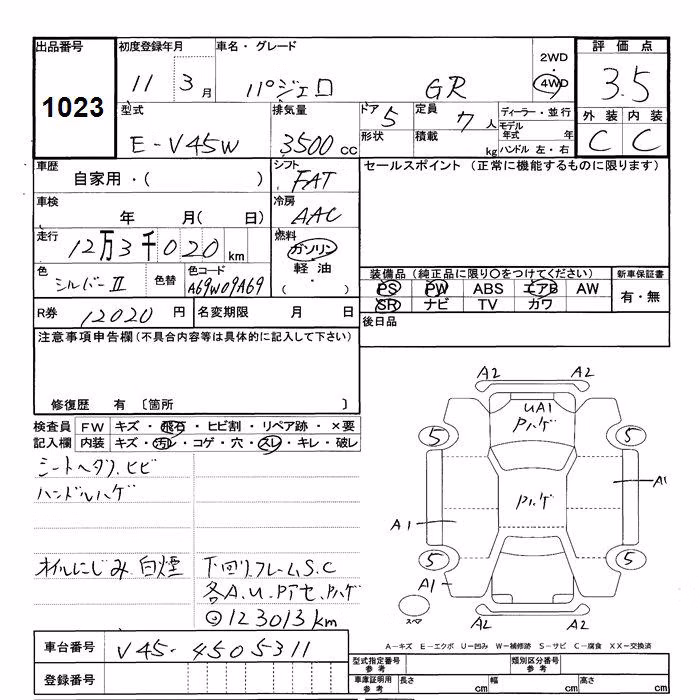 出品番号
1023
初度登録年月
11 3月
車名・グレード
パジェロ GR
2WD
4WD
評価点
3.5
型式
E-V45W
排気量
3500cc
ドア 5
形状
定員 7人
積載 kg
ディーラー・並行
モデル年式 年
ハンドル 左・右
外装 内装
C C
車歴
自家用・( )
シフト
FAT
セールスポイント (正常に機能するものに限ります)
車検
年 月( 日)
冷房
AAC
走行
12万3千020km
燃料
ガソリン
軽油
( ・ )
色
シルバーII
色替
色コード
A69W09A69
装備品 (純正品に限り○をつけてください)
PS PW ABS エアB AW
SR ナビ TV カワ
新車保証書
有・無
R券 12020円
名変期限 月 日
後日品
注意事項申告欄(不具合内容等は具体的に記入して下さい)
修復歴 有 〔箇所 〕
検査員記入欄
FW キズ・飛石・ヒビ割・リペア跡・×要
内装 キズ・汚レ・コゲ・穴・スレ・キレ・破レ
シートヘタリ、ヒビ
ハンドルハゲ
オイルにじみ、白煙
下回り、フレームS、C
各A、U、Pアセ、Pハゲ
◎123013km
A2 A2
UA1
Pハゲ
5 5
Pハゲ
A1
A1
5 5
A1
スペア
A2 A2
A―キズ E―エクボ U―凹み W―補修跡 S―サビ C―腐食 XX―交換済
車台番号 V45-4505311
登録番号
型式指定番号 参考
類別区分番号 参考
車庫証明用 参考
長さ cm 幅 cm 高さ cm